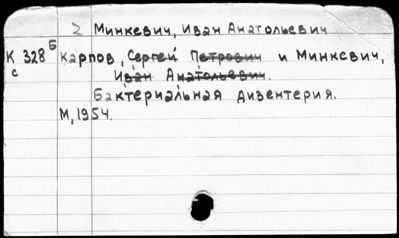 2 Минкевич, Иван Анатольевич
К 328 Б Карпов, Сергей Петрович и Минкевич,
с Иван Анатольевич.
Бактериальная дизентерия.
М, 1954.